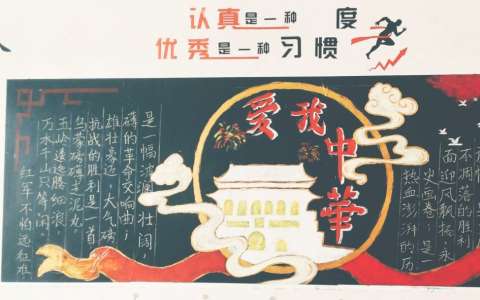 认真是一种 度
优秀是一种习惯
爱我中華
红军不怕远征难
万水千山只等闲
五岭逶迤腾细浪
乌蒙磅礴走泥丸
抗战的胜利是一首
雄壮豪迈,大气磅
礴的革命交响曲;
是一幅波澜壮阔,
热血澎湃的历
史画卷;是一
面迎风飘扬、永
不凋落的胜利